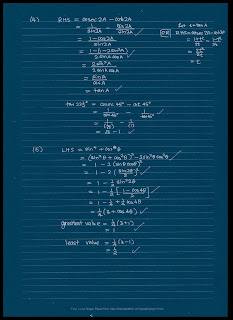 (4) RHS = cosec 2A - cot 2A
= 1/sin2A - cos2A/sin2A
= (1-cos2A)/sin2A
= (1-(1-2sin²A))/(2sinA cosA)
= 2sin²A/(2sinA cosA)
= sinA/cosA
= tan A
OR
Let t = tan A
RHS = cosec 2A - cot 2A
= (1+t²)/2t - (1-t²)/2t
= 2t²/2t
= t
tan 22½° = cosec 45° - cot 45°
= 1/sin45° - 1/tan45°
= 1/(1/√2) - 1/(1)
= √2 - 1
(5) LHS = sin⁴θ + cos⁴θ
= (sin²θ + cos²θ)² - 2sin²θcos²θ
= 1 - 2 (sinθ cosθ)²
= 1 - 2 (sin2θ/2)²
= 1 - ½ sin²2θ
= 1 - ½ [(1-cos4θ)/2]
= 1 - ¼ + ¼ cos4θ
= ¼ (3 + cos 4θ)
greatest value = ¼ (3+1)
= 1
least value = ¼ (3-1)
= ½